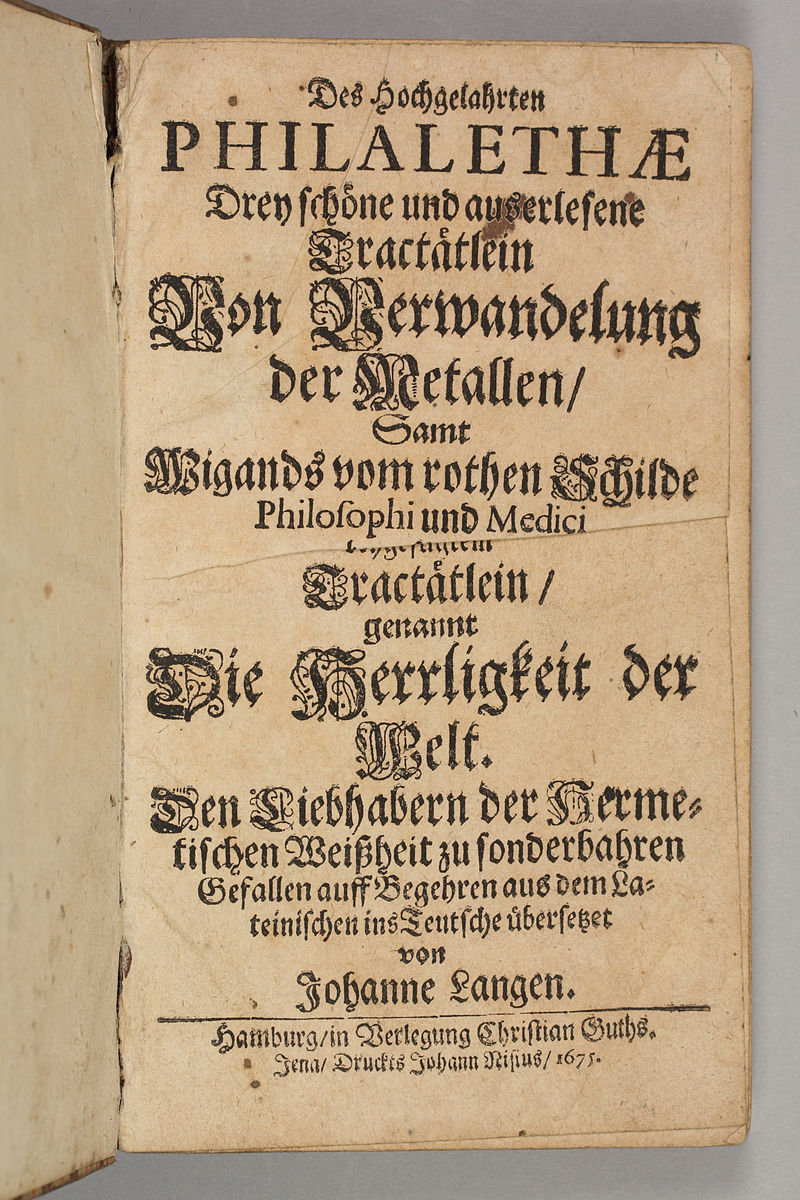 Des Hochgelahrten
PHILALETHÆ
Drey schöne und auserlesene
Tractätlein
Von Verwandelung
der Metallen/
Samt
Wigands vom rothen Schilde
Philosophi und Medici
Tractätlein /
genannt
Die Herrligkeit der
Welt.
Den Liebhabern der Herme-
tischen Weißheit zu sonderbahren
Gefallen auff Begehren aus dem La-
teinischen ins Teutsche übersetzet
von
Johanne Langen.
Hamburg/in Verlegung Christian Guths.
Jena/ Druckts Johann Nisius/ 1675.